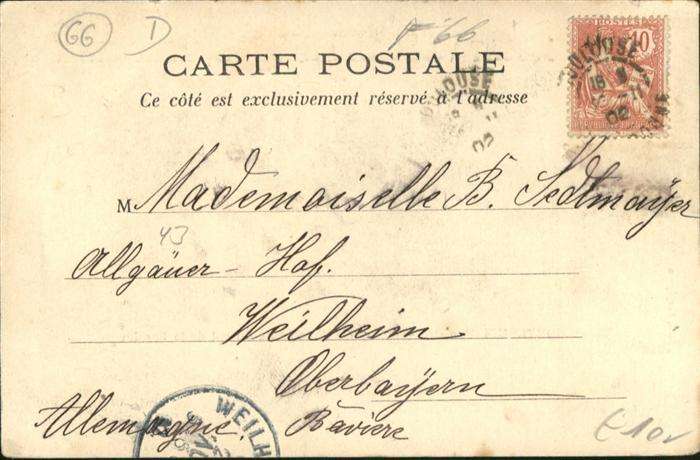 66 D F 66
POSTES 10
CARTE POSTALE
TOULOUSE
Ce côté est exclusivement réservé à l'adresse
M Mademoiselle B. Sedlmayer
43
Allgäuer - Hof.
Weilheim
Oberbayern
Allemagne. Bavière
WEILH